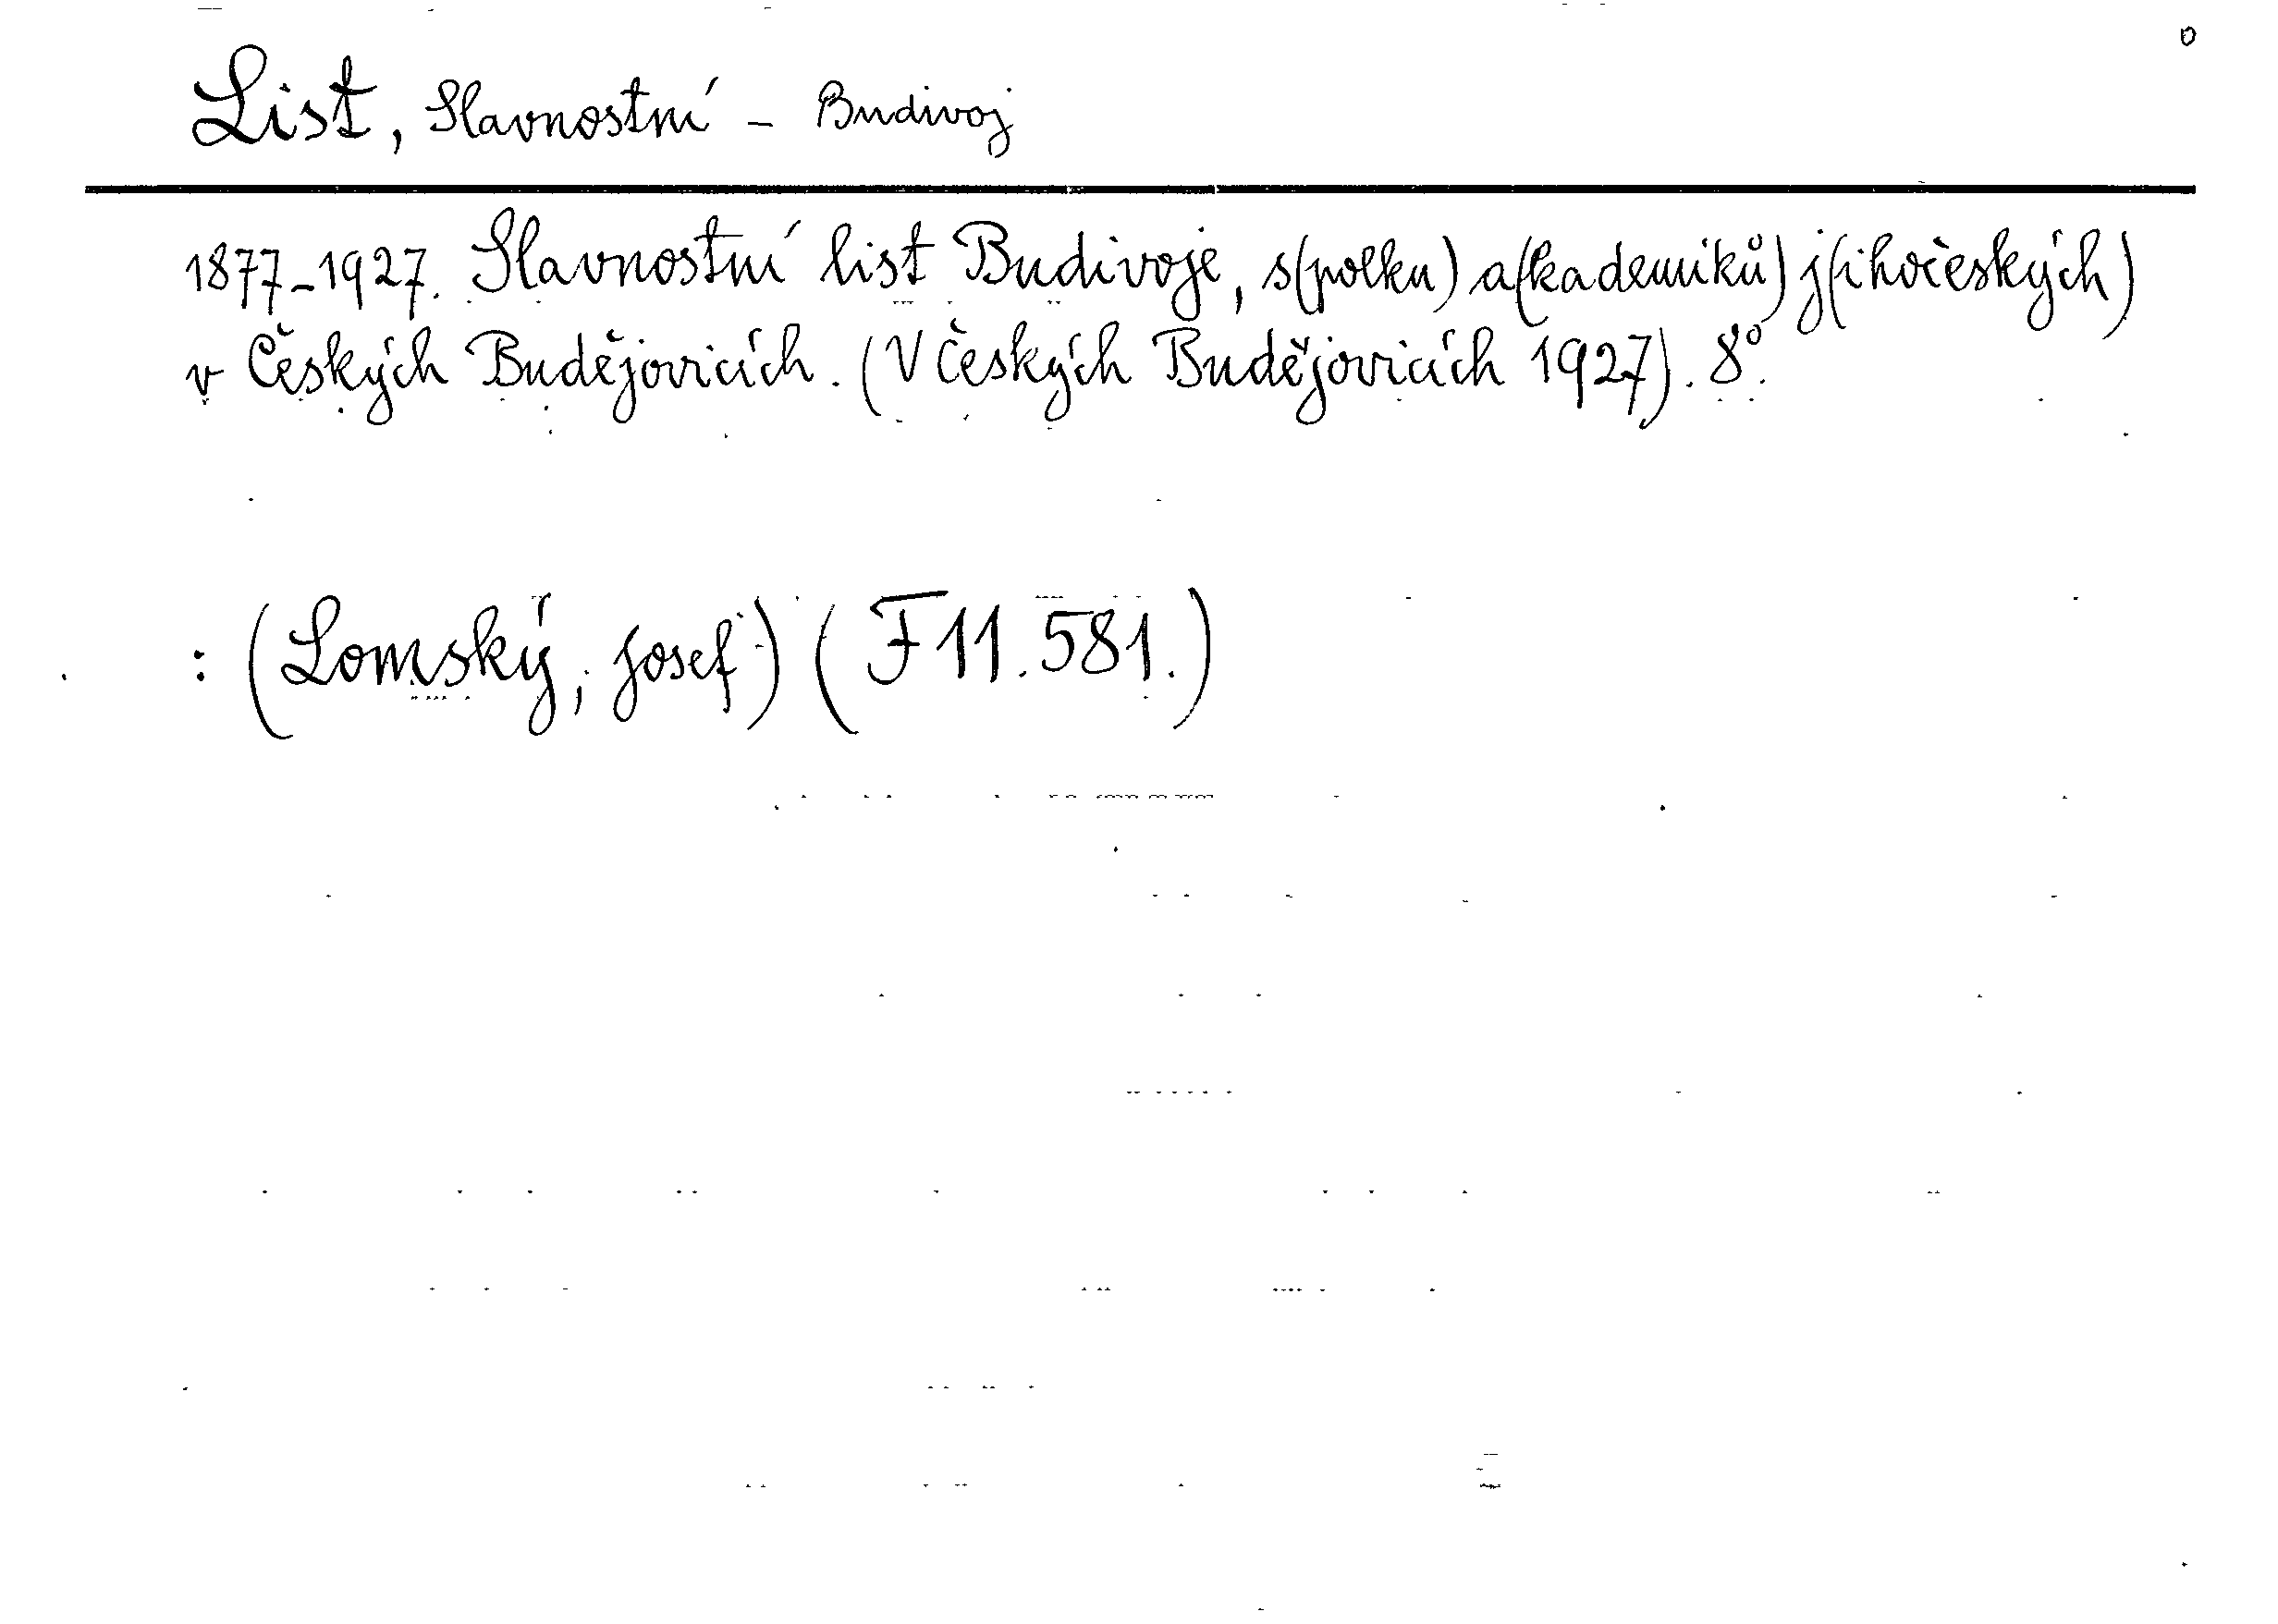 o
List, Slavnostní - Budivoj
1877-1927. Slavnostní list Budivoje, s(polku) a(kademiků) j(ihočeských)
v Českých Budějovicích. (V Českých Budějovicích 1927). 8°.
: (Lomský, Josef) (F 11.581.)